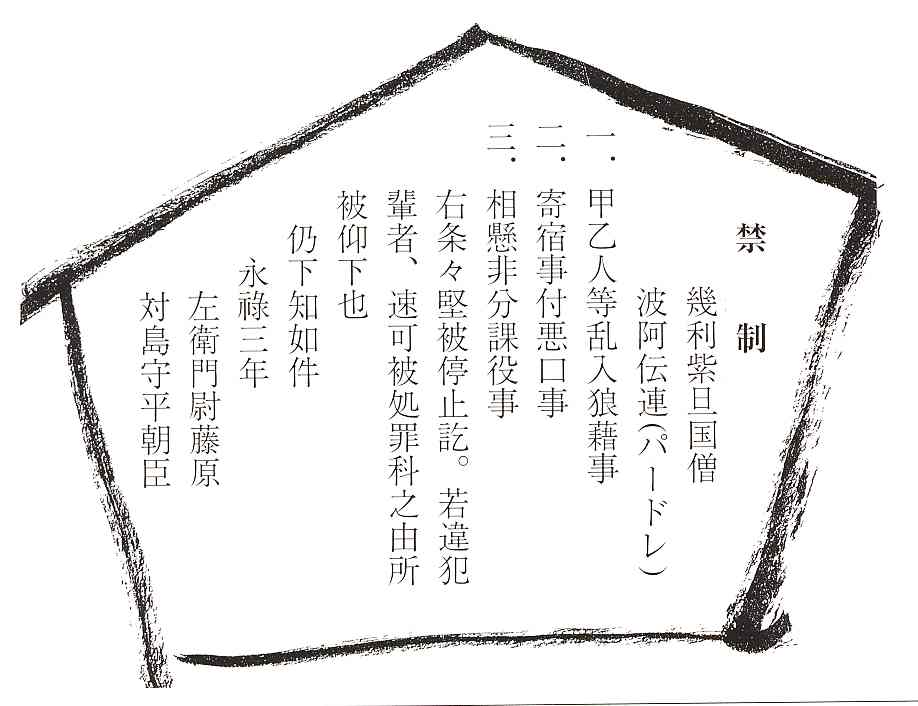 禁制
幾利紫旦国僧
波阿伝連(パードレ)
一. 甲乙人等乱入狼藉事
二. 寄宿事付悪口事
三. 相懸非分課役事
右条々堅被停止訖。若違犯
輩者、速可被処罪科之由所
被仰下也
仍下知如件
永祿三年
左衛門尉藤原
対島守平朝臣